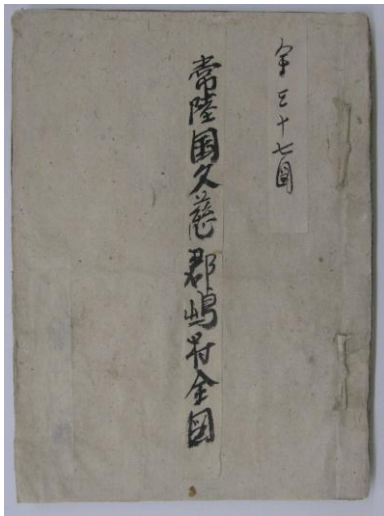 三十七
常陸国久慈郡嶋村全図